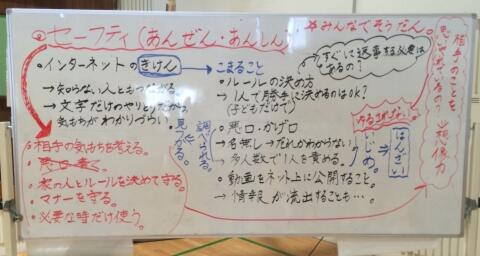 ◎セーフティ(あんぜん・あんしん)
☆みんなでそうだん。
・インターネットの きけん
→知らない人ともつながる。
→文字だけのやりとりだから、
気もちがわかりづらい。
・相手の気もちを考える。
・悪口×書く。
・家の人とルールを決めて守る。
・マナーを守る。
・必要な時だけ使う。
→こまること
・ルールの決め方
→1人で勝手に決めるのはOK?
(子どもだけで)
・悪口・かげ口
→名無し→だれかわからない
→多人数で1人を責める。
・動画をネット上に公開すること。
→情報が流出することも…。
調べられる。
見つかる。
すぐに返事する必要は
あるの?
ゆるさない
いじめ。
⇒
はんざい
相手のことを
考えているの?
⇒想像力